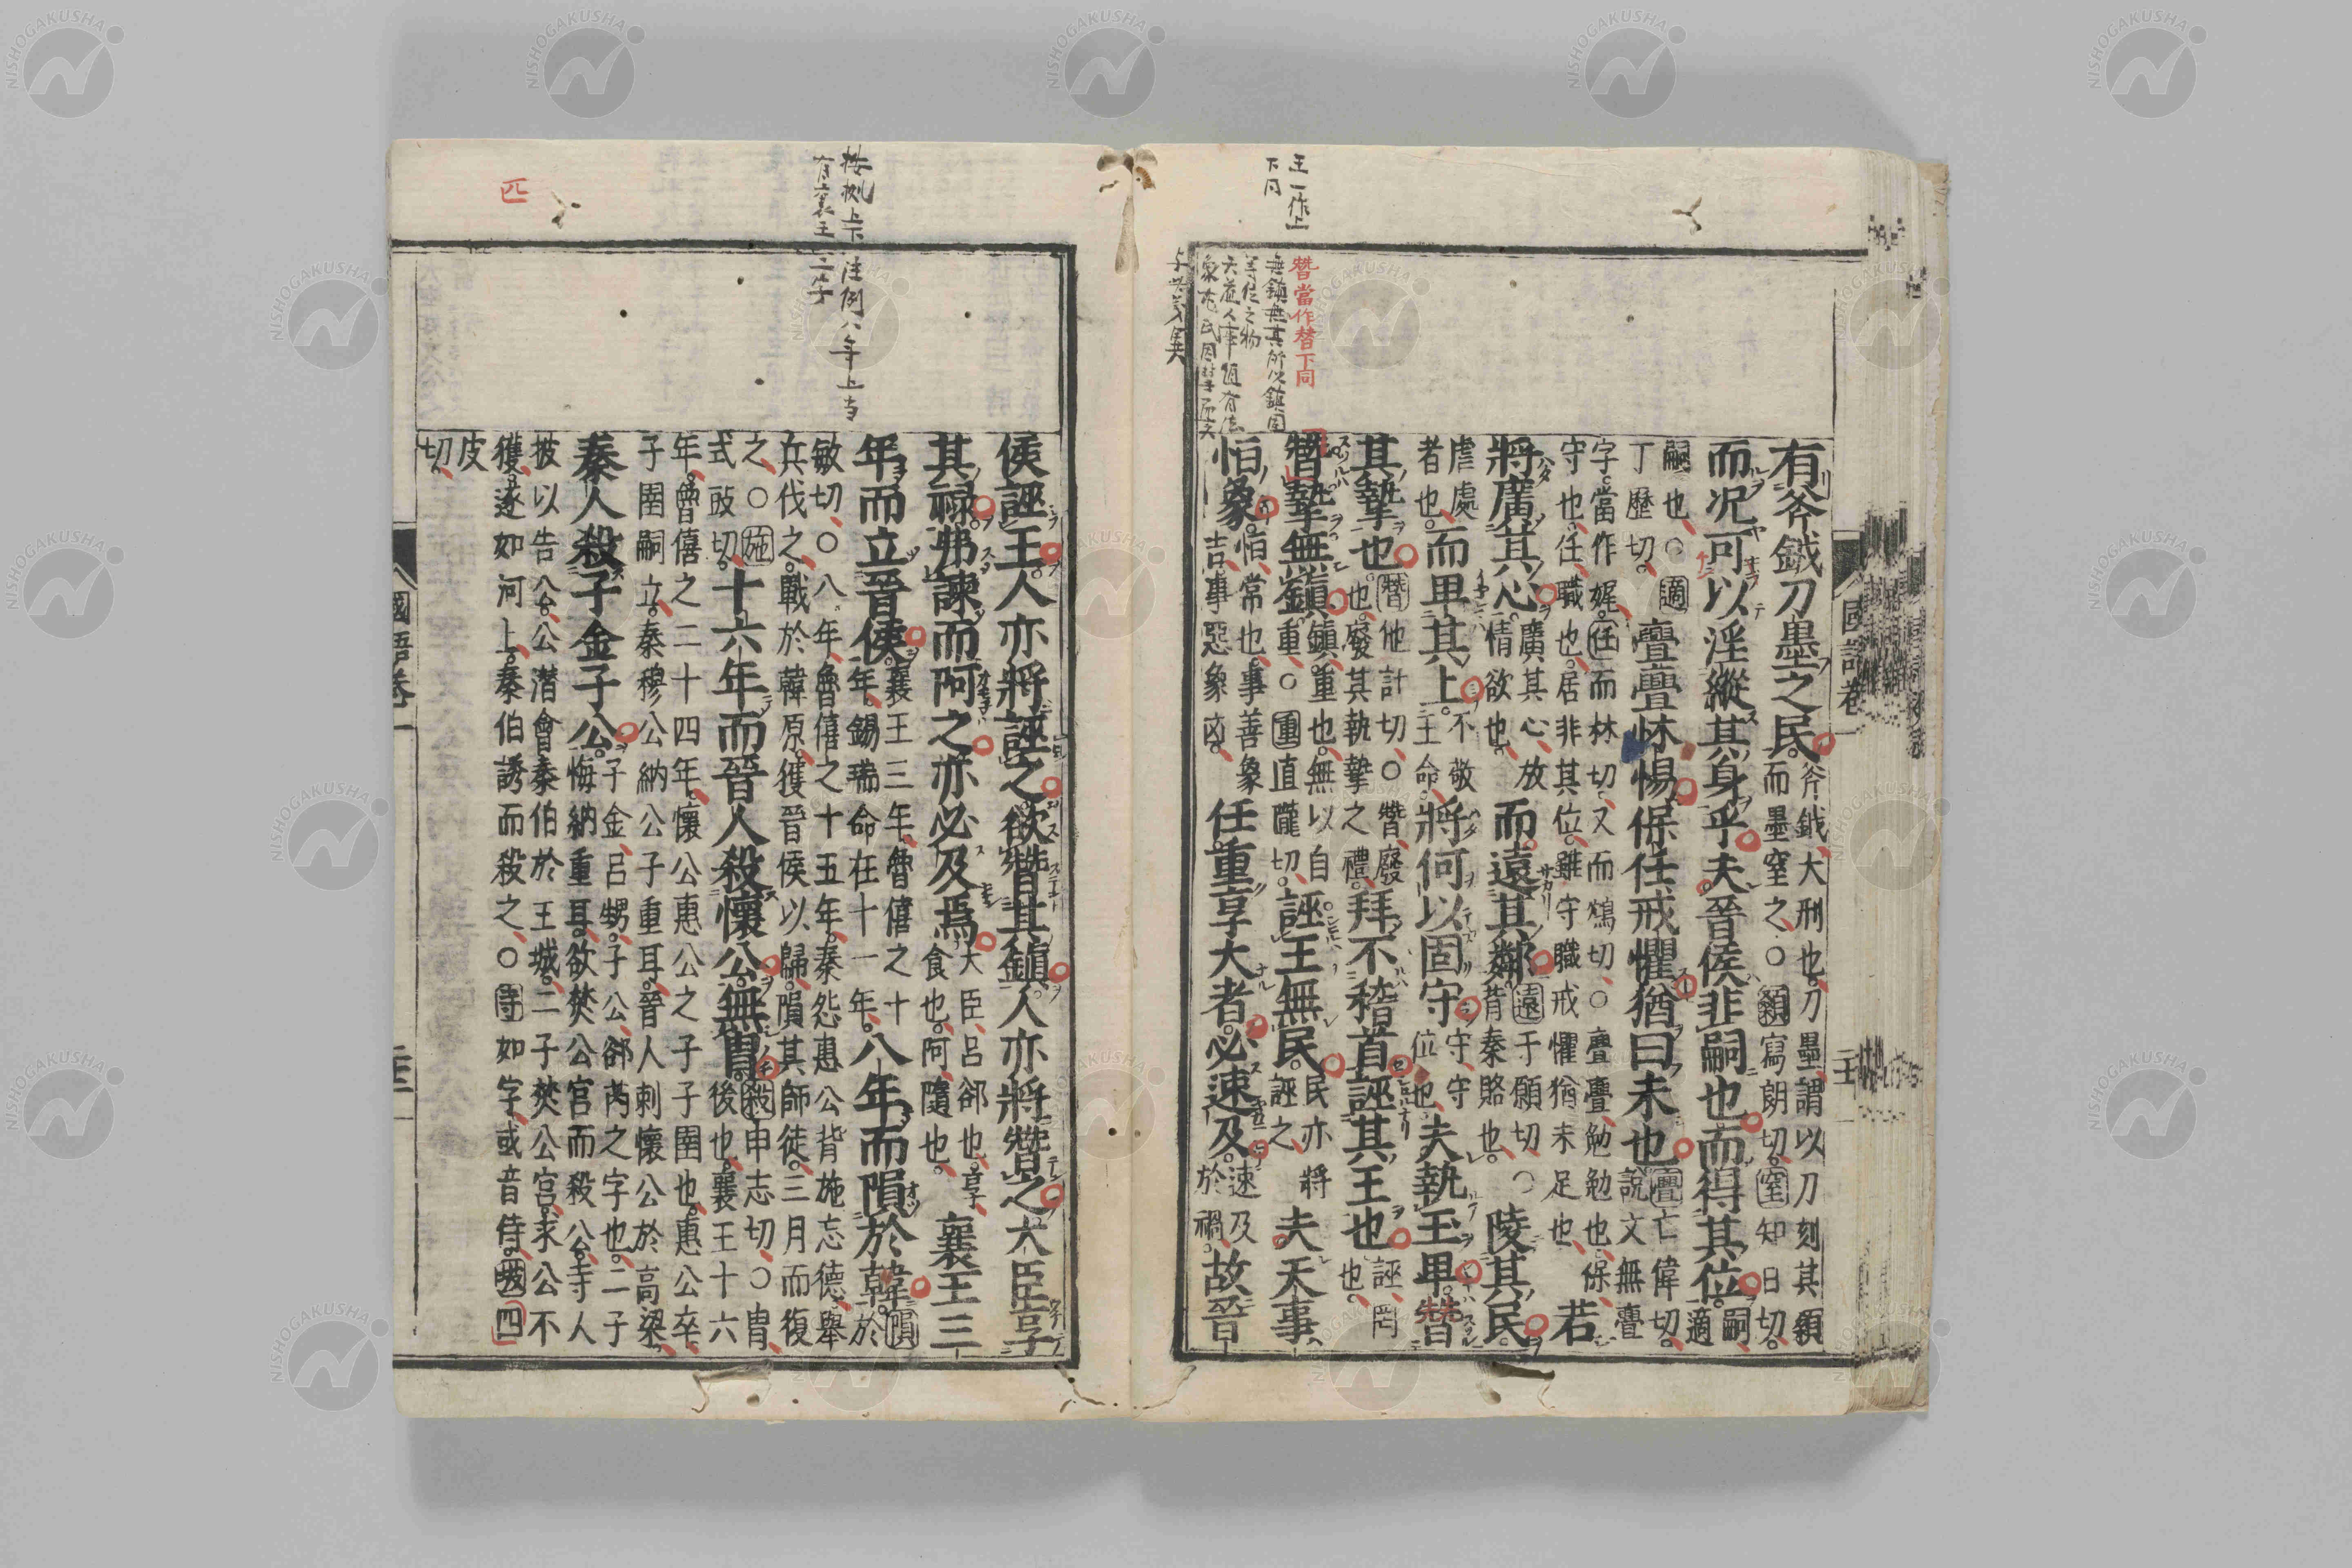 王一作上
下同
朁當作替下同
無鎮無其所以鎮固
有斧鉞刀墨之民斧鉞大刑也刀墨謂以刀刻其額而墨窒之○額寫朗切窒知日切
而況可以淫縱其身乎夫晉侯非嗣也而得其位嗣適
嗣也○適丁歷切亹亹怵惕保任戒懼猶曰未也亹亡偉切說文無亹
字當作娓任而林切又而鴆切○亹亹勉勉也保守也任職也居非其位雖守職戒懼猶未足也若
將廣其心廣其心放情欲也而遠其鄰遠于願切○背秦賂也陵其民
虐處者也而卑其上不敬王命將何以固守守守位也夫執玉卑朁
其摯也朁他計切○朁廢也廢其執摯之禮拜不稽首誣其王也誣罔也
朁摯無鎮鎮重也無以自重○重直隴切誣王無民誣之民亦將夫天事
恒象恒常也事善象吉事惡象凶任重享大者必速及速及於禍故晉
國語卷
按例上下注例八年上当
有襄王二字
匹
侯誣王人亦將誣之欲朁其鎮人亦將朁之大臣享
其祿弗諫而阿之亦必及焉大臣呂郤也享食也阿隨也襄王三
年而立晉侯襄王三年魯僖之十年錫瑞命在十一年八年而隕於韓隕於
敏切○八年魯僖之十五年秦怨惠公背施忘德舉兵伐之戰於韓原獲晉侯以歸隕其師徒三月而復
之○施式豉切十六年而晉人殺懷公無冑殺申志切○冑後也襄王十六
年魯僖之二十四年懷公惠公之子子圉也惠公卒子圉嗣立秦穆公納公子重耳晉人刺懷公於高梁
秦人殺子金子公子金呂甥子公郤芮之字也二子悔納重耳欲焚公宮而殺公寺人
披以告公公潛會秦伯於王城二子焚公宮求公不獲遂如河上秦伯誘而殺之○寺如字或音侍披四
皮切
國語卷一